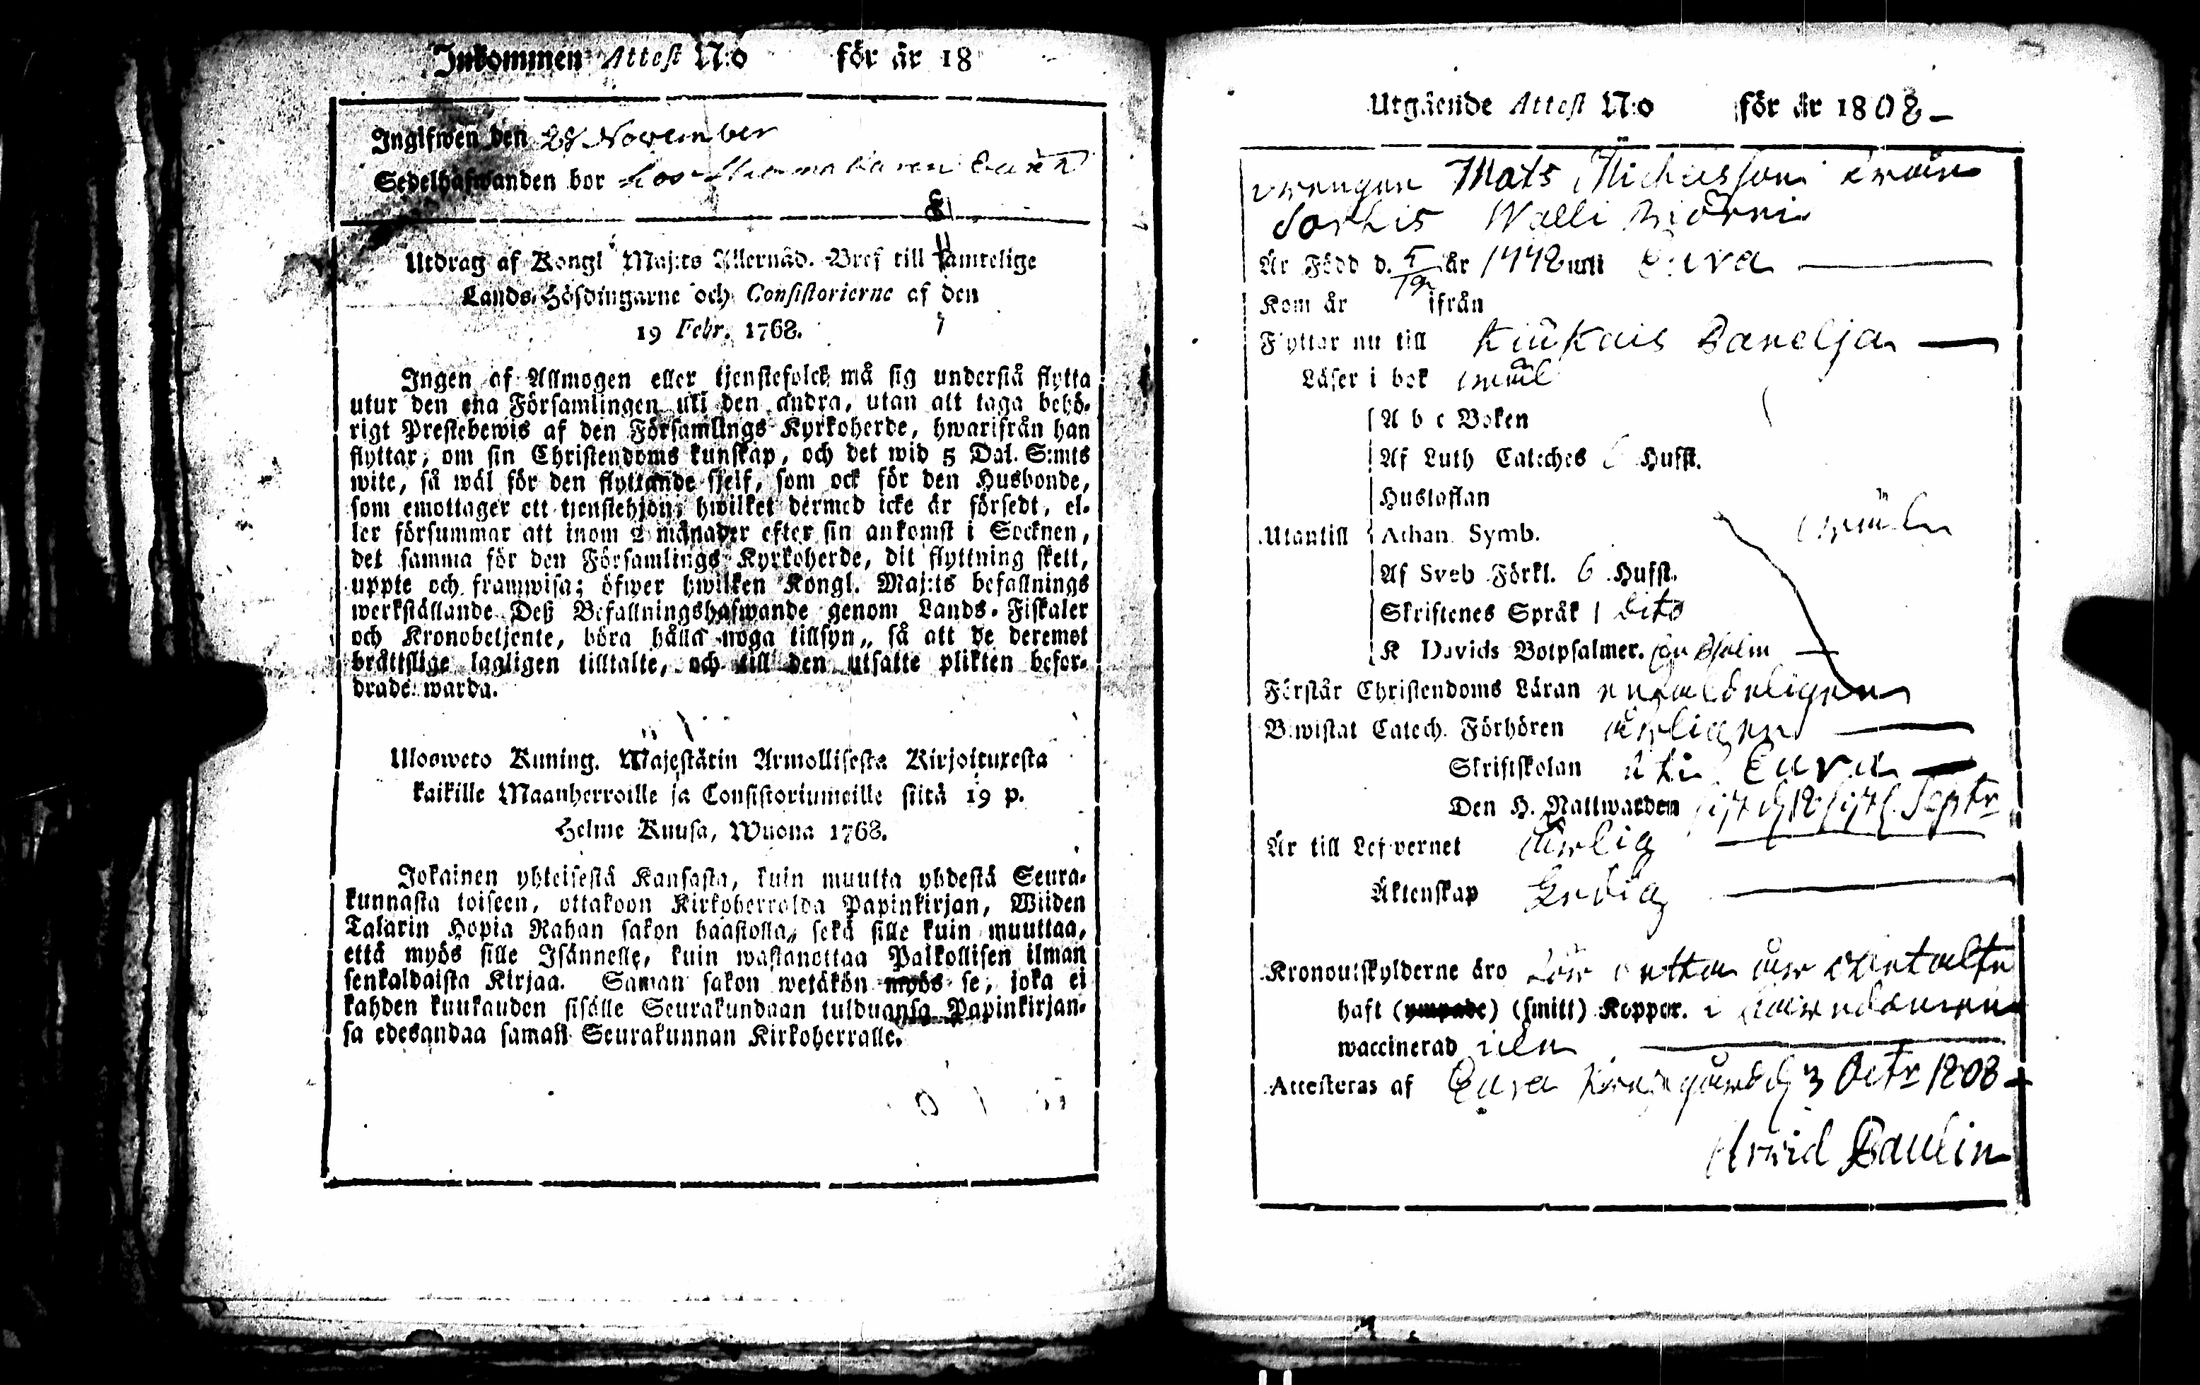 Inkommen Attest N:o för år 18
Ingifwen den 28 November
Sedelhafwanden bor hos
Utdrag af Kongl Maj:ts Allernåd. Bref till samtelige
Lands-Höfdingarne och Consistorierne af den
19 Febr. 1768.
Ingen af Allmogen eller tjenstefolck må sig understå flytta
utur den ena Församlingen uti den andra, utan att taga behö-
rigt Prestebewis af den Församlings Kyrkoherde, hwarifrån han
flyttar, om sin Christendoms kunskap, och det wid 5 Dal. S:mts
wite, så wäl för den flyttande sjelf, som ock för den Husbonde,
som emottager ett tjenstehjon, hwilket dermed icke är försedt, el-
ler försummar att inom 2 månader efter sin ankomst i Socknen,
det samma för den Församlings Kyrkoherde, dit flyttning skett,
uppte och framwisa; öfwer hwilken Kongl. Maj:ts befallnings
werkställande Deß Befallningshafwande genom Lands-Fiskaler
och Kronobetjente, böra hålla noga tillsyn, så att de deremot
bråttslige lagligen tilltalte, och till den utsatte plikten befor-
drade warda.
Ulosweto Kuning. Majestätin Armollisesta Kirjoituxesta
kaikille Maanherroille ja Consistoriumeille siitä 19 p.
Helme Kuusa, Wuona 1768.
Jokainen yhteisestä Kansasta, kuin muutta yhdestä Seura-
kunnasta toiseen, ottakoon Kirkoherralda Papinkirjan, Wiiden
Talarin Hopia Rahan sakon haastolla, sekä sille kuin muuttaa,
että myös sille Isännelle, kuin wastanottaa Palkollisen ilman
senkaldaista Kirjaa. Saman sakon wetäkön myös se, joka ei
kahden kuukauden sisälle Seurakundaan tulduansa Papinkirjan-
sa edesandaa saman Seurakunnan Kirkoherralle.
Utgående Attest N:o för år 1808
Drengen Mats Michelsson ifrån
Sorkis
Är Född d. år uti Eura
Kom år ifrån
Flyttar nu till Kiukais Panelja
Läser i bok
A b c Boken
Af Luth Cateches 6 Hufst.
Hustaflan
Utantill Athan. Symb.
Af Sveb Förkl. 6 Hufst.
Skriftenes Språk dito
K Davids Botpsalmer.
Förstår Christendoms Läran enfaldeligen
Biwistat Catech. Förhören årligen
Skriftskolan uti Eura
Den H. Nattwarden sist d 18 Septr
Är till Lefvernet ärlig
Äktenskap Ledig
Kronoutskylderne äro för detta år
haft (ympade) (smitt) Koppor. i barndomen
waccinerad icke
Attesteras af Eura Prästgård d 3 Octr 1808
Arvid Paulin